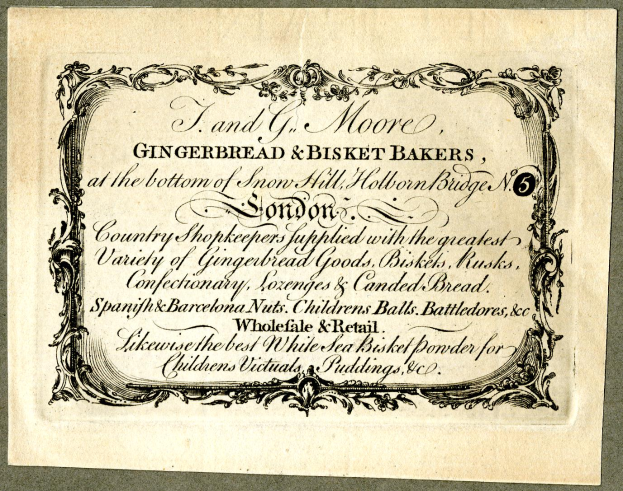 T. and G. Moore,
GINGERBREAD & BISKET BAKERS,
at the bottom of Snow Hill, Holborn Bridge No. 5
London.
Country Shopkeepers supplied with the greatest
Variety of Gingerbread Goods, Biskets, Rusks,
Confectionary, Lozenges & Canded Bread.
Spaniſh & Barcelona Nuts. Childrens Balls. Battledores, &c
Wholeſale & Retail.
Likewise the best White Sea Bisket Powder for
Childrens Victuals, Puddings, &c.